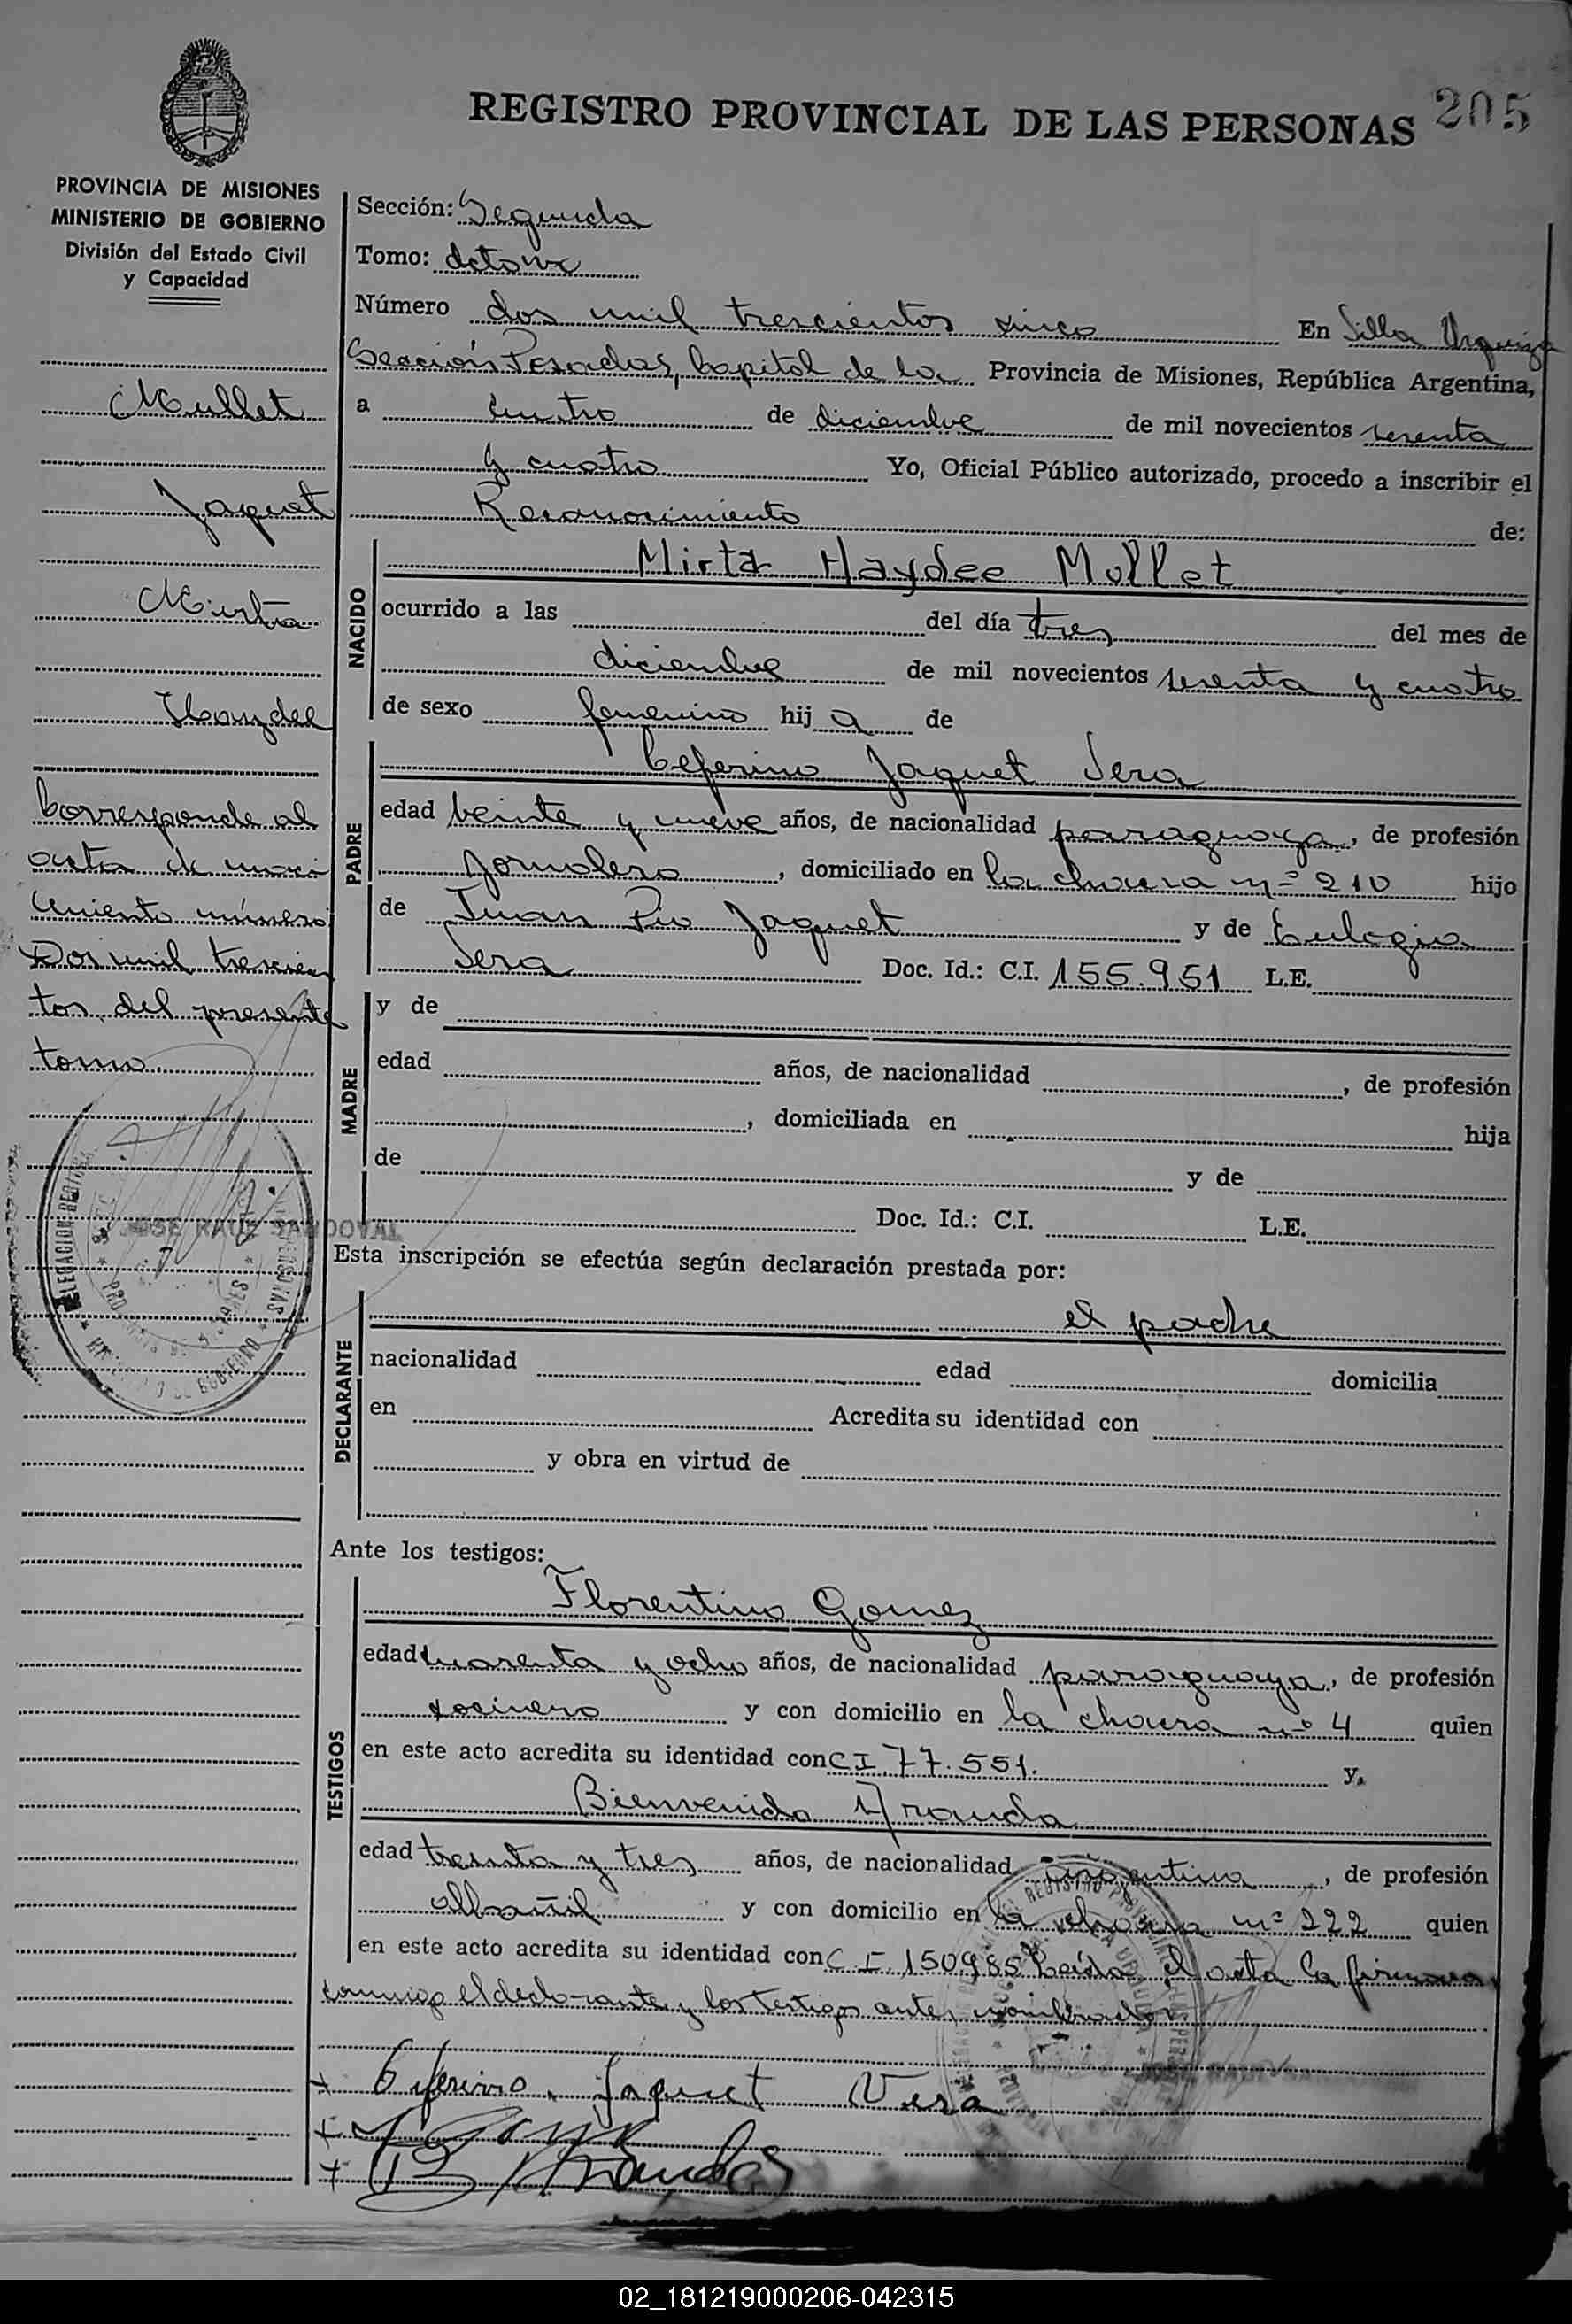 REGISTRO PROVINCIAL DE LAS PERSONAS 205
PROVINCIA DE MISIONES
MINISTERIO DE GOBIERNO
División del Estado Civil
y Capacidad
Mullet
Jaquet
Mirta
Haydee
Corresponde al
acta de naci
miento número
Dos mil trescien
tos del presente
tomo.
JOSE RAUL SANDOVAL
Sección: Segunda
Tomo: Octavo
Número dos mil trescientos cinco En Villa Urquiza
Sección Posadas, Capital de la Provincia de Misiones, República Argentina,
a cuatro de diciembre de mil novecientos sesenta
y cuatro Yo, Oficial Público autorizado, procedo a inscribir el
Reconocimiento de:
NACIDO
Mirta Haydee Mullet
ocurrido a las del día tres del mes de
diciembre de mil novecientos sesenta y cuatro
de sexo femenino hij a de
PADRE
Ceferino Jaquet Vera
edad veinte y nueve años, de nacionalidad paraguaya, de profesión
jornalero, domiciliado en la chacra nº 210 hijo
de Juan Pio Jaquet y de Eulogia
Vera Doc. Id.: C.I. 155.951 L.E.
MADRE
y de
edad años, de nacionalidad , de profesión
, domiciliada en hija
de y de
Doc. Id.: C.I. L.E.
Esta inscripción se efectúa según declaración prestada por:
DECLARANTE
el padre
nacionalidad edad domicilia
en Acredita su identidad con
y obra en virtud de
Ante los testigos:
TESTIGOS
Florentino Gomez
edad cuarenta y ocho años, de nacionalidad paraguaya, de profesión
cocinero y con domicilio en la chacra nº 4 quien
en este acto acredita su identidad con C I 77.551. y,
Bienvenido Aranda
edad treinta y tres años, de nacionalidad argentina, de profesión
albañil y con domicilio en la chacra nº 222 quien
en este acto acredita su identidad con C I 150985 Leída el acta la firman
conmigo el declarante y los testigos antes nombrados
Ceferino Jaquet Vera
B Aranda
02_181219000206-042315